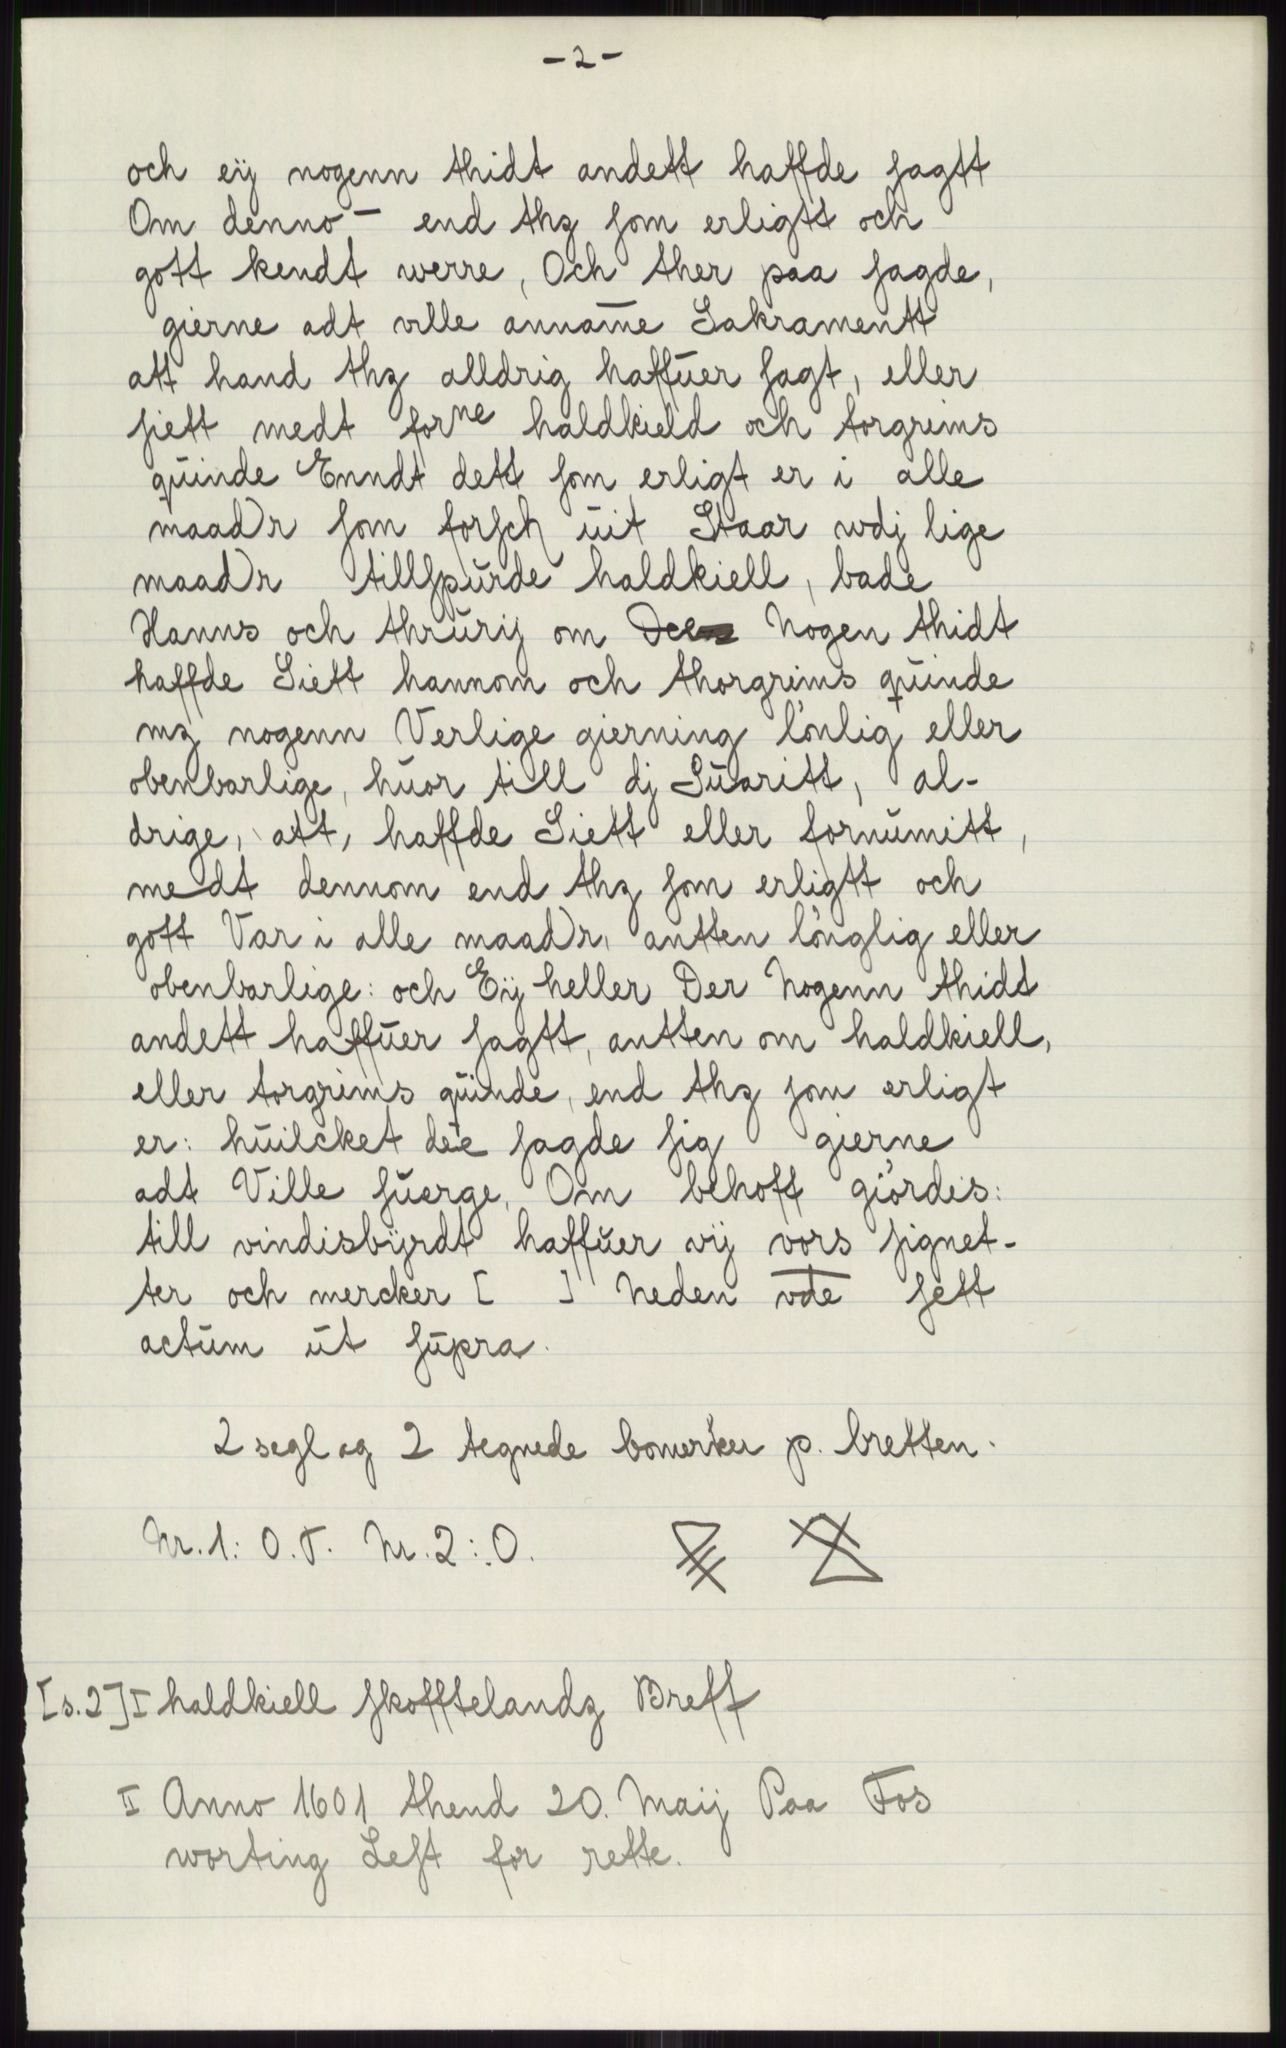 - 2 -
och eÿ nogenn thidt andett haffde sagtt
Om denno‾ end thz som erligtt och
gott kendt werre, Och ther paa sagde,
gierne adt ville anname̅ Sakramentt
att hand thz alldrig haffŭer sagt, eller
siett medt forne haldkield och torgrims
qŭinde Enndt dett som erligt er i alle
maadr som forsch ŭit Staar wdj lige
maadr tillspŭrde haldkiell, bade
Hanns och thrŭrij om Nogen thidt
haffde Siett hannom och thorgrims qŭinde
mz nogenn Verlige gierning lönlig eller
obenbarlige, hŭor till dj Sŭaritt, al-
drige, att, haffde Siett eller fornŭmitt,
medt dennom end thz som erligtt och
gott Var i alle maadr, antten lönglig eller
obenbarlige: och Eÿ heller Der Nogenn thidt
andett haffŭer sagtt, antten om haldkiell,
eller torgrims qŭinde, end thz som erligt
er: hŭilcket dee sagde sig gierne
adt Ville sŭerge, Om behoff giördis:
till vindisbÿrdt haffŭer vij vors signet-
ter och mercker [ ] Neden vde̅ sett
actŭm ŭt sŭpra.
2 segl og 2 tegnede bomerker p. bretten.
Nr. 1: O.T. Nr. 2: O.
[s. 2] I haldkiell skofftelandz Breff
II Anno 1601 thend 20. Maij Paa Fos
worting Lest for rette.